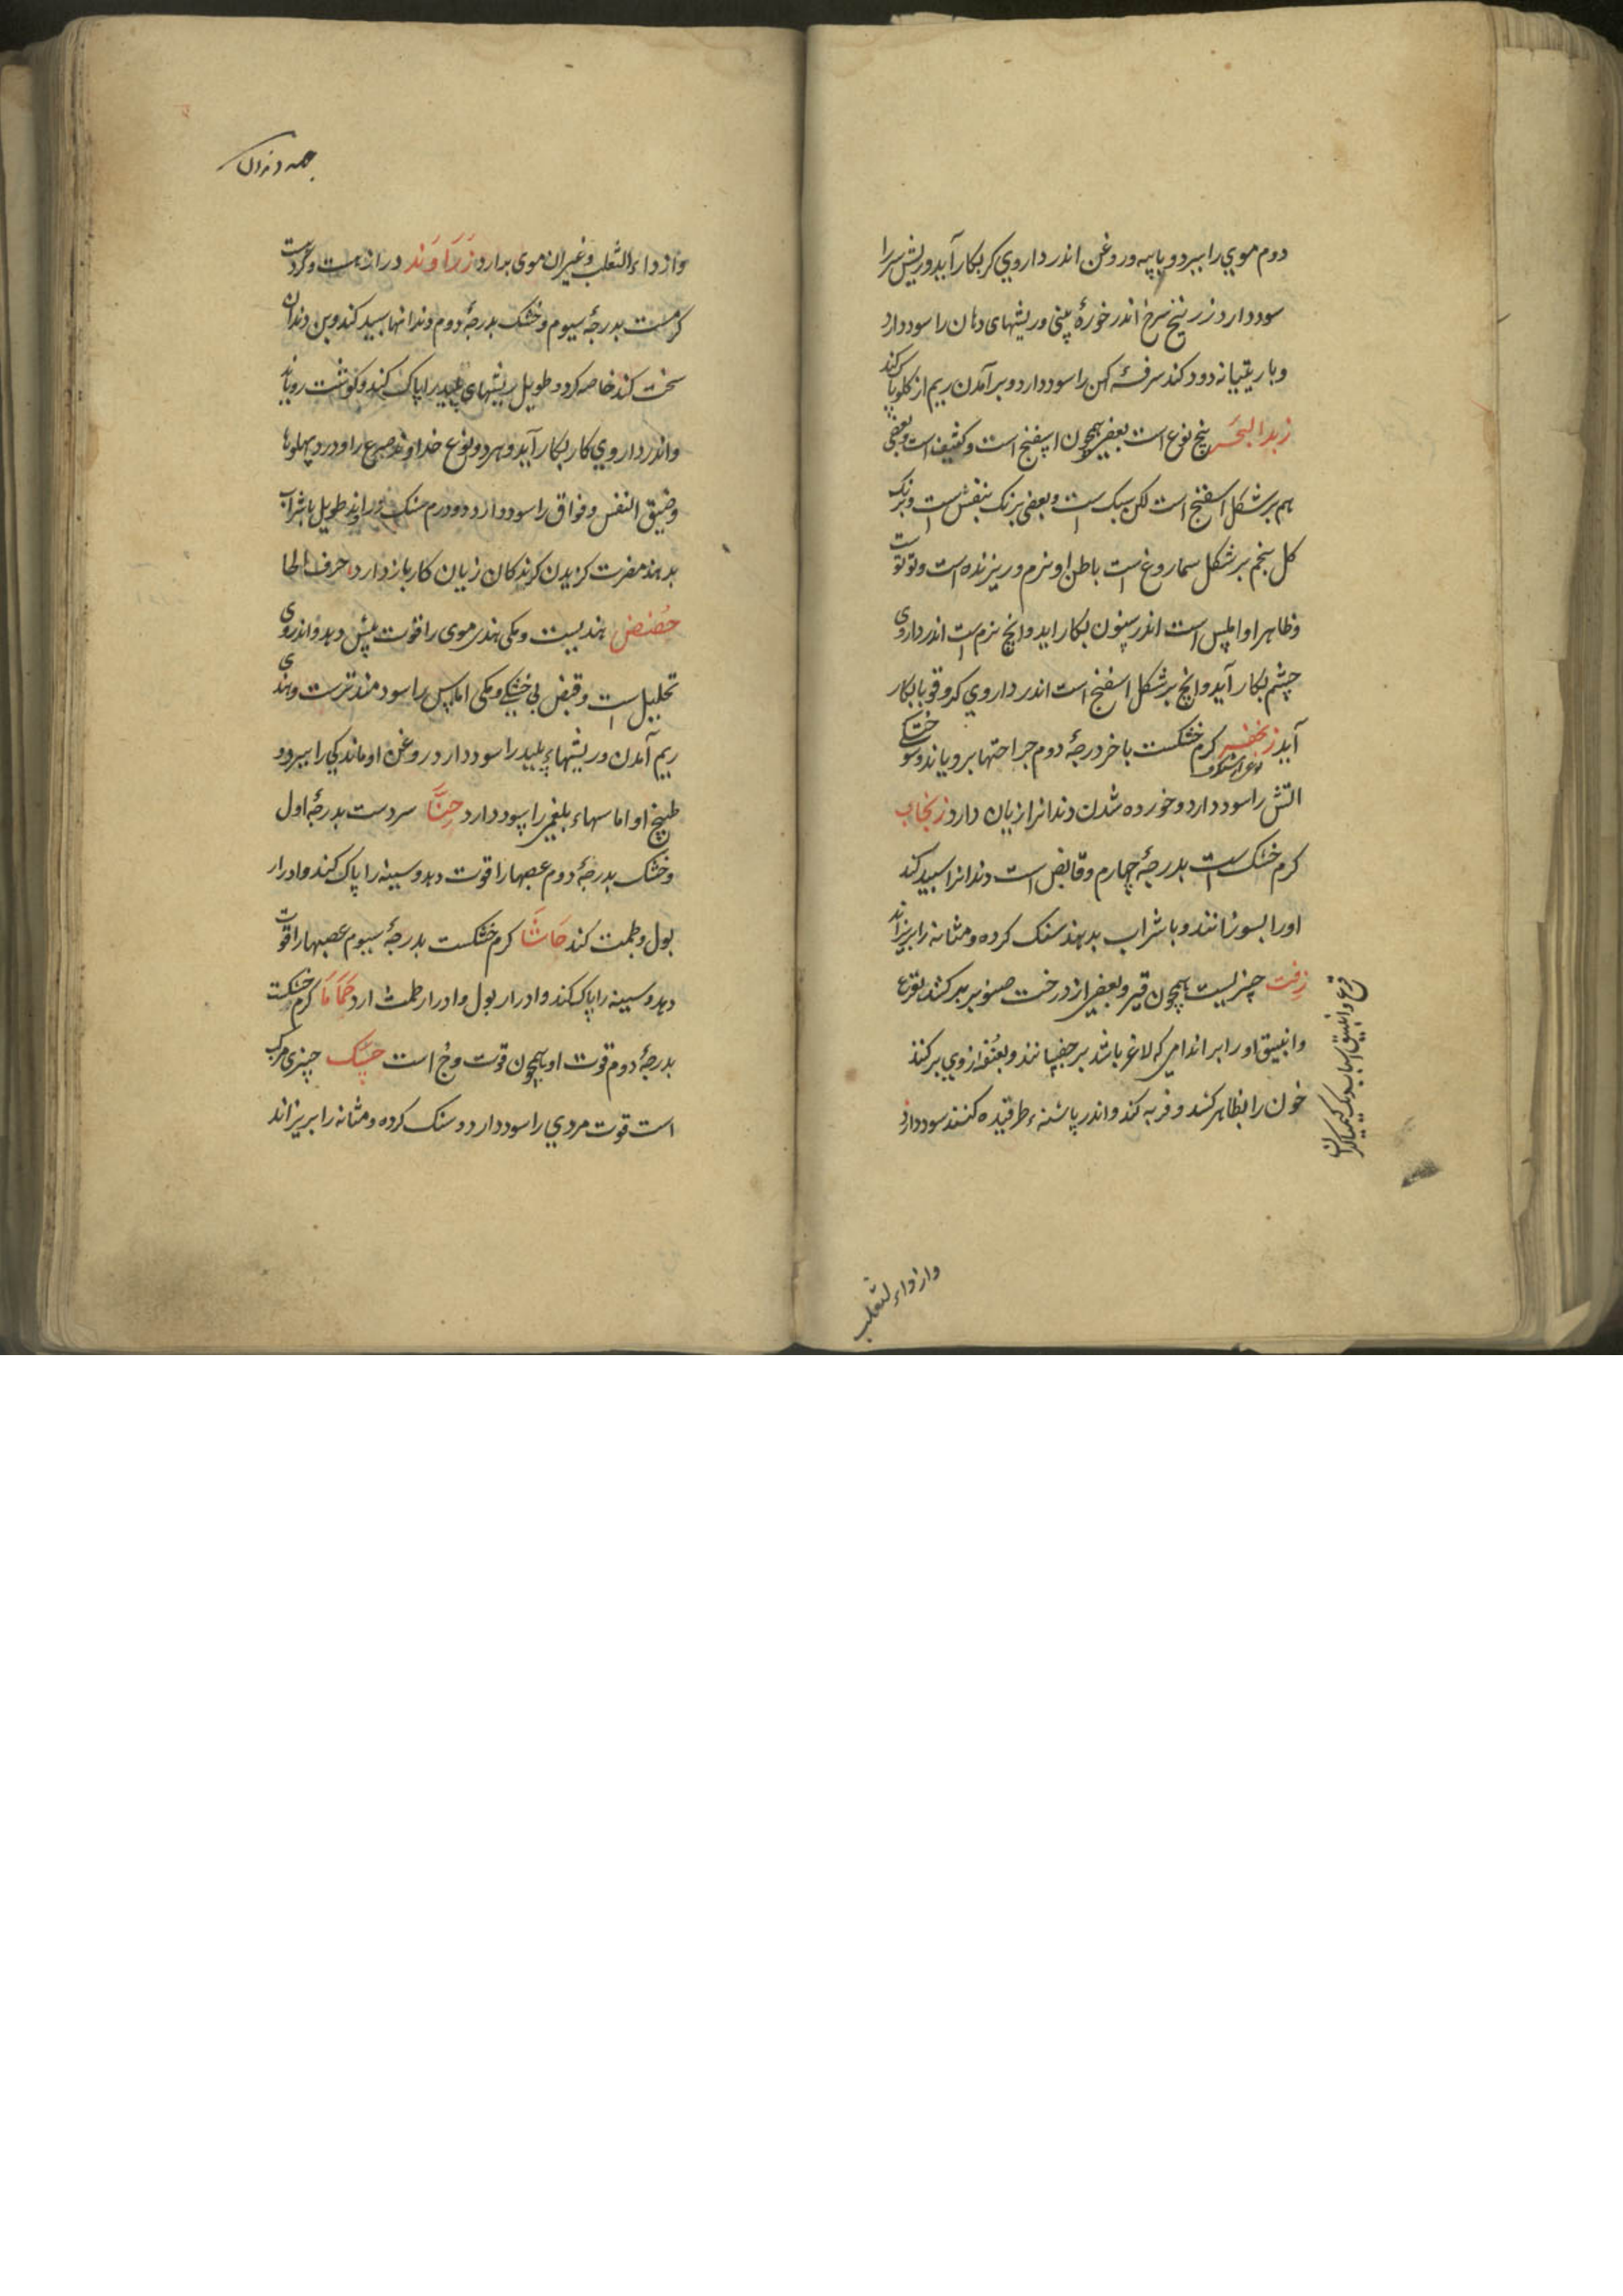 دوم موي را ببرد و با پيه و روغن اندر داروي كر بكار آيد و ريش سر را
سود دارد زرنيخ سرخ اندر خورهٔ بيني و ريشهاى دهان را سود دارد
و با ريتيانه دود كند سرفهٔ كهن را سود دارد و برآمدن ريم از كلو پاك كند
زبد البحر پنج نوع است بعضي همچون اسپنج است و كثيف است و بعضي
هم بر شكل اسفنج است لكن سبك است و بعضي برنك بنفش است و برنك
كل پنجم بر شكل سماروغ است باطن او نرم و ريزنده است و توتوست
و ظاهر او املس است اندر سنون بكار ايد و انچ نرم است اندر داروى
چشم بكار آيد و انچ بر شكل اسفنج است اندر داروي كر و قوبا بكار
آيد زنجفر كرم خشكست باخر درجهٔ دوم جراحتها بروياند و سوختكى
نوع از شنكرف
اتش را سود دارد و خورده شدن دندانرا زيان دارد زنجاب
كرم خشك است بدرجهٔ چهارم و قابض است دندانرا سپيد كند
اورا بسوزانند و با شراب بدهند سنك كرده و مثانه را بريزاند
زفت چيزيست همچون قير و بعضي از درخت صنوبر بركشند بقرع
و انبيق او را بر اندامي كه لاغر باشد بر چفسانند و بعنف از وي بركنند
خون را بظاهر كشد و فربه كند و اندر پاشنهٔ طرقيده كنند سود دارد
قرع و انبيق اسباب
و از داء الثعلب
و از داء الثعلب و غير ان موى برارد زَرَاوَند دراز هست و كردست
كرمست بدرجهٔ سيوم و خشك بدرجهٔ دوم دندانها سپيد كند و بن دندان
سخت كند خاصه كرد و طويل ريشهاي پليد را پاك كند و كوشت روياند
و اندر داروي كار بكار آيد و هر دو نوع خداوند صرع را و درد پهلوها
و ضيق النفس و فواق را سود دارد و ورم و زراوند طويل با شراب
بدهند مضرت كزيدن كزندكان زيان كار باز دارد حرف الحا
حُضض هنديست و مكى هندى موى را قوت پيش دهد و اندروى
تحليل است و قبض بى خشكى و مكى اماس را سودمندترست و هندى
ريم آمدن و ريشهاء پليد را سود دارد روغن او ماندكي را ببرد و
طبيخ او اماسهاء بلغمي را سود دارد حِنَّا سردست بدرجهٔ اول
و خشك بدرجهٔ دوم عصبها را قوت دهد و سينه را پاك كند و ادرار
بول و طمث كند حَاشَا كرم خشكست بدرجهٔ سيوم عصبها را قوت
دهد و سينه را پاك كند و ادرار بول و ادرار طمث ارد حَمَامَا كرم خشكست
بدرجهٔ دوم قوت او همچون قوت وج است حسَك چيزى مركب
است قوت مردي را سود دارد و سنك كرده و مثانه را بريزاند